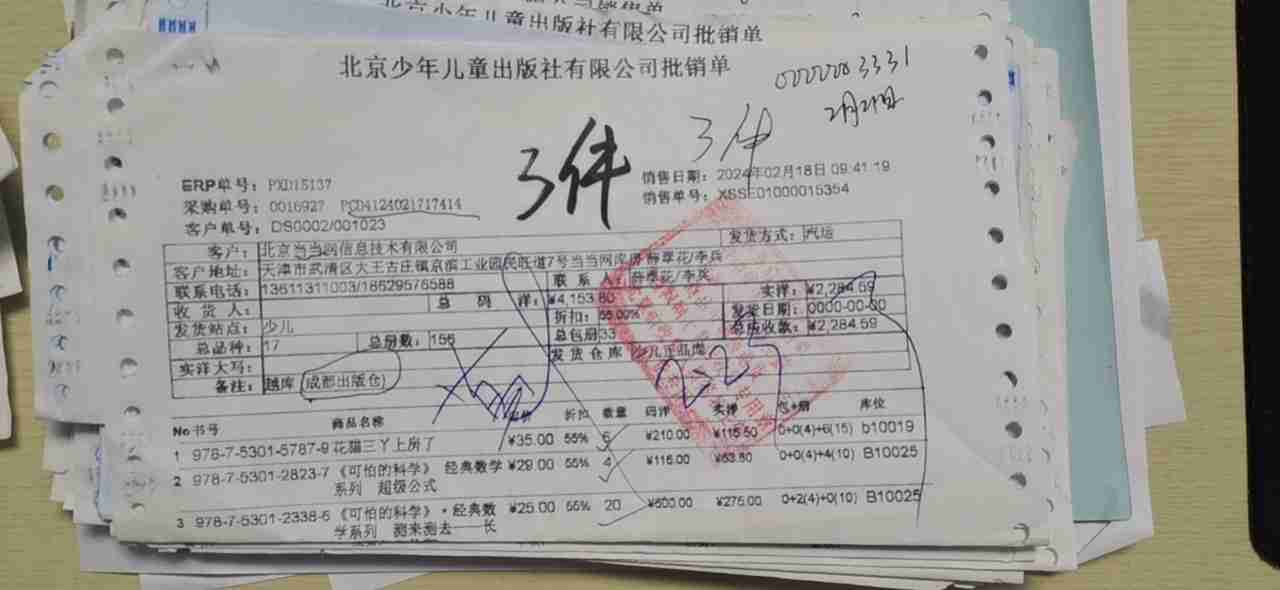 北京少年儿童出版社有限公司批销单
北京少年儿童出版社有限公司批销单
0000003331
2月21日
3件
3件
ERP单号: PXD15137
销售日期: 2024年02月18日 09:41:19
采购单号: 0016927 PCD4124021717414
销售单号: XSSE01000015354
客户单号: DS0002/001023
客户: 北京当当网信息技术有限公司
发货方式: 汽运
客户地址: 天津市武清区大王古庄镇京滨工业园民旺道7号当当网库房 薛翠花/李兵
联系电话: 13611311003/18629576588
联系人: 薛翠花/李兵
实洋: ¥2,284.59
收货人:
总码洋: ¥4,153.80
发货日期: 0000-00-00
发货站点: 少儿
折扣: 55.00%
总应收款: ¥2,284.59
总品种: 17
总册数: 156
总包册 33
实洋大写:
发货仓库 少儿正品库
备注: 越库 (成都出版仓)
2.25
No 书号 商品名称 定价 折扣 数量 码洋 实洋 包+册 库位
1 978-7-5301-5787-9 花猫三丫上房了 ¥35.00 55% 6 ¥210.00 ¥115.50 0+0(4)+6(15) b10019
2 978-7-5301-2823-7 《可怕的科学》 经典数学 ¥29.00 55% 4 ¥116.00 ¥63.80 0+0(4)+4(10) B10025
系列 超级公式
3 978-7-5301-2338-6 《可怕的科学》·经典数 ¥25.00 55% 20 ¥500.00 ¥275.00 0+2(4)+0(10) B10025
学系列 测来测去——长